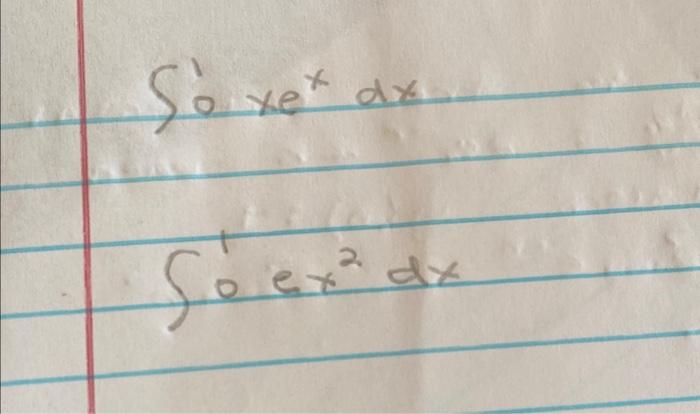 ∫₀¹ xeˣ dx
∫₀¹ ex² dx